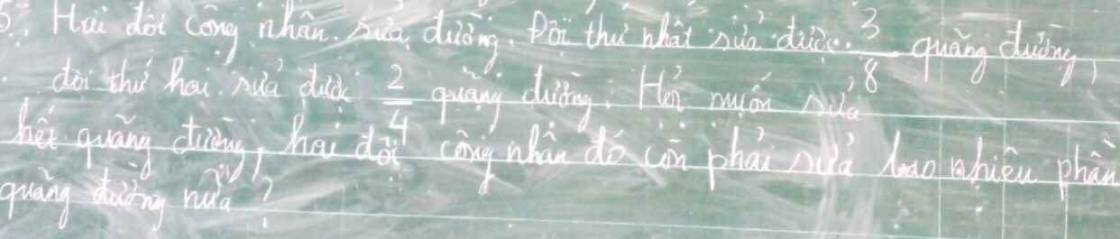 5. Hai đội công nhân sửa đường. Đội thứ nhất sửa được 3/8 quãng đường,
đội thứ hai sửa được 2/4 quãng đường. Hỏi muốn sửa
hết quãng đường, hai đội công nhân đó còn phải sửa bao nhiêu phần
quãng đường nữa?